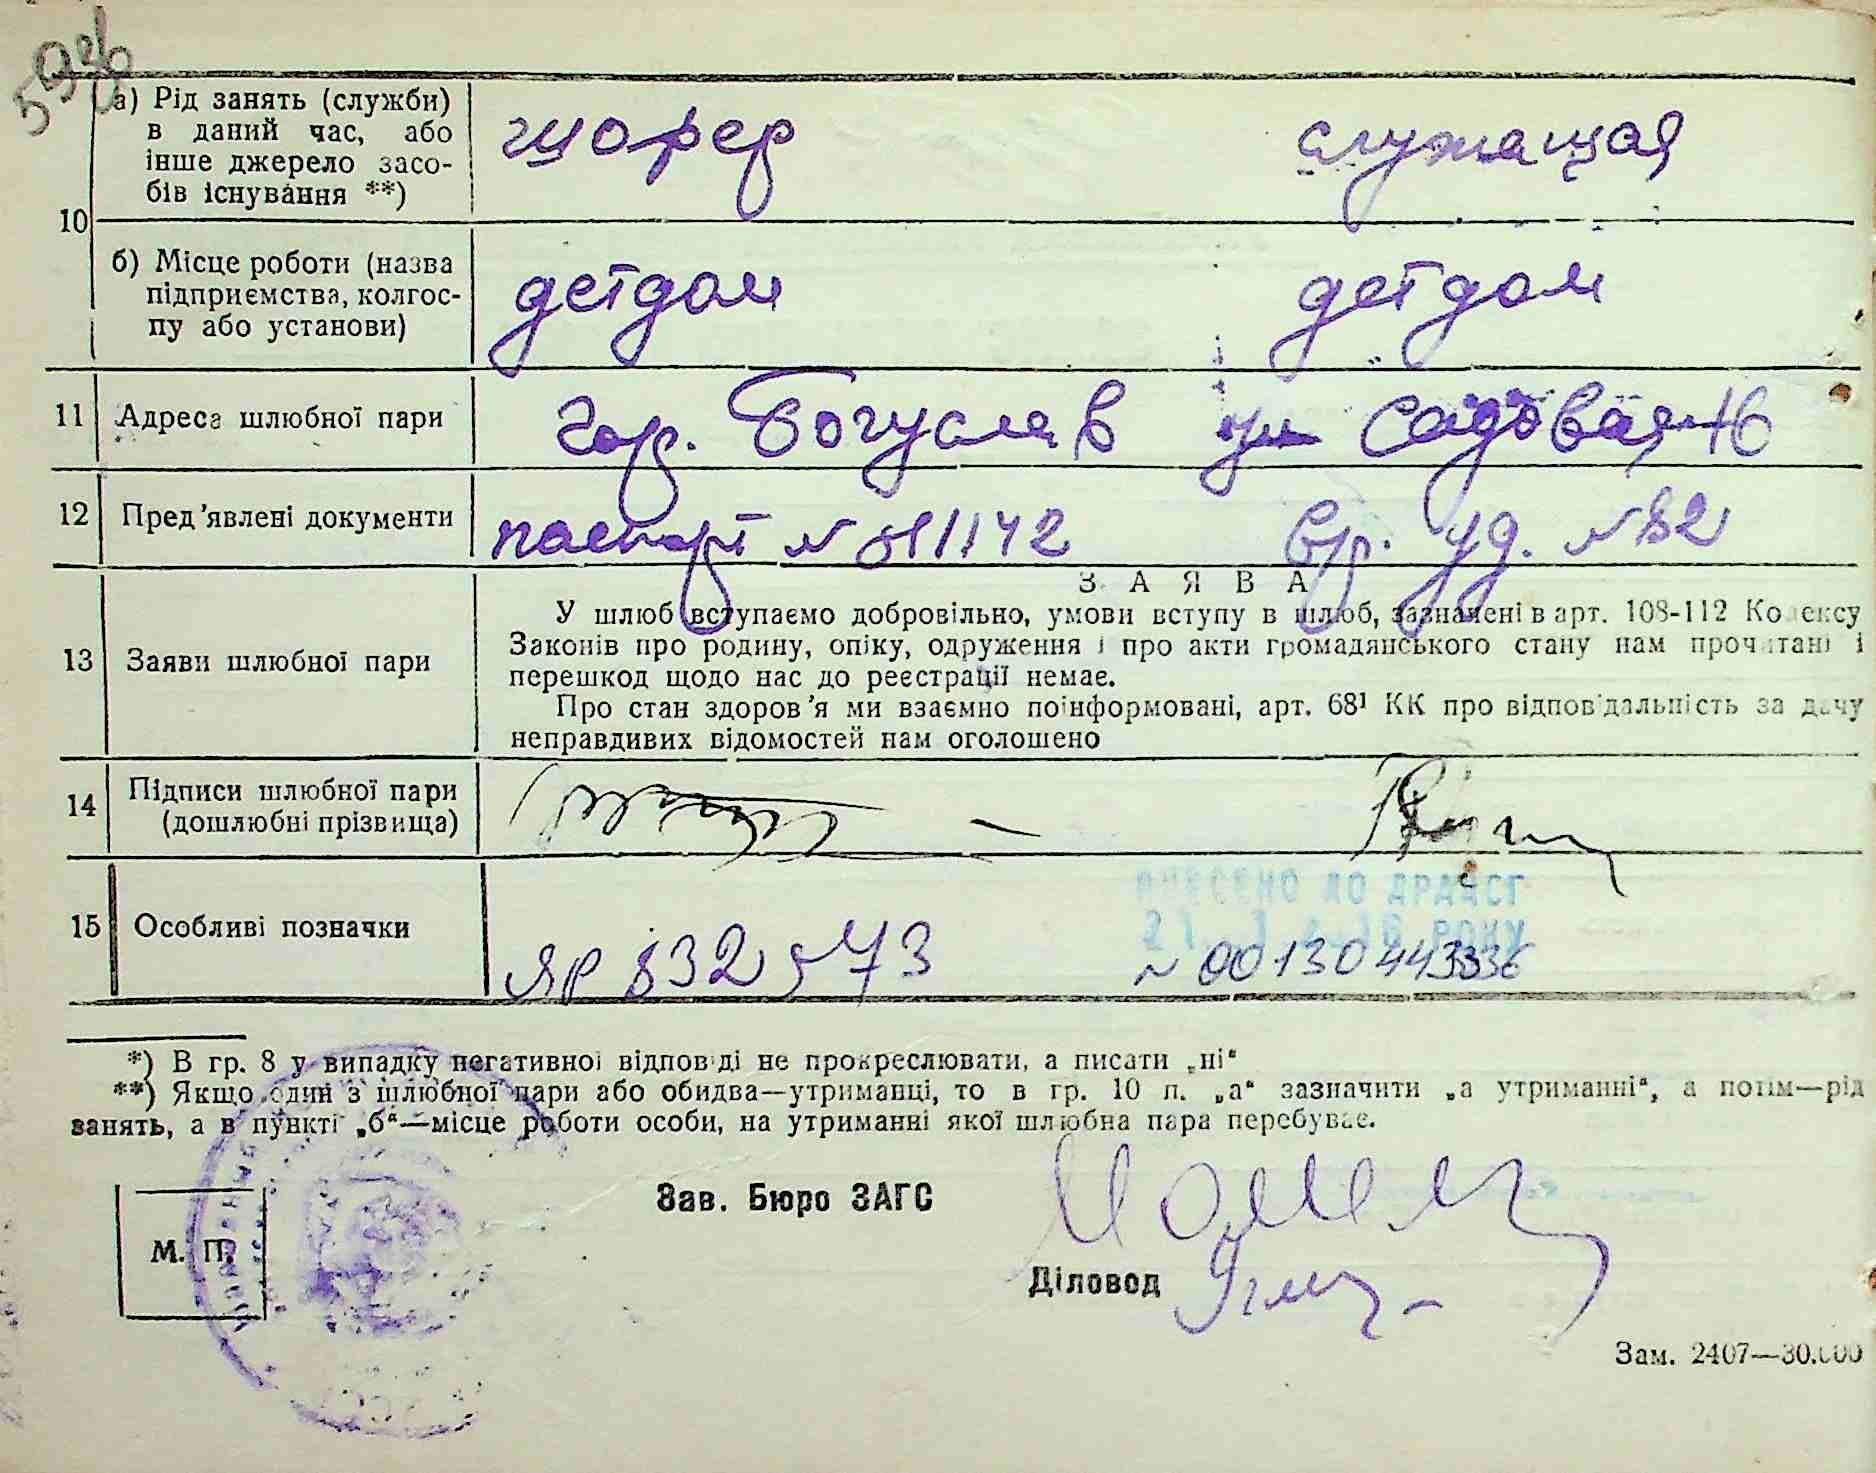 59об
а) Рід занять (служби)
в даний час, або
інше джерело засо-
бів існування **)
шофер служащая
10
б) Місце роботи (назва
підприємства, колгос-
пу або установи)
детдом детдом
11 Адреса шлюбної пари гор. Богуслав ул Садовая
12 Пред'явлені документи паспорт N вр. уд. N 82
З А Я В А
У шлюб вступаємо добровільно, умови вступу в шлюб, зазначені в арт. 108-112 Кодексу
13 Заяви шлюбної пари Законів про родину, опіку, одруження і про акти громадянського стану нам прочитані і
перешкод щодо нас до реєстрації немає.
Про стан здоров'я ми взаємно поінформовані, арт. 68¹ КК про відповідальність за дачу
неправдивих відомостей нам оголошено
14 Підписи шлюбної пари
(дошлюбні прізвища)
ВНЕСЕНО ДО ДРАЦСГ
РОКУ
15 Особливі позначки
ЯР 832573 N 00130443336
*) В гр. 8 у випадку негативної відповіді не прокреслювати, а писати „ні“
**) Якщо один з шлюбної пари або обидва—утриманці, то в гр. 10 п. „а“ зазначити „а утриманні“, а потім—рід
занять, а в пункті „б“—місце роботи особи, на утриманні якої шлюбна пара перебуває.
Зав. Бюро ЗАГС
М. П.
Діловод
Зам. 2407—30.000